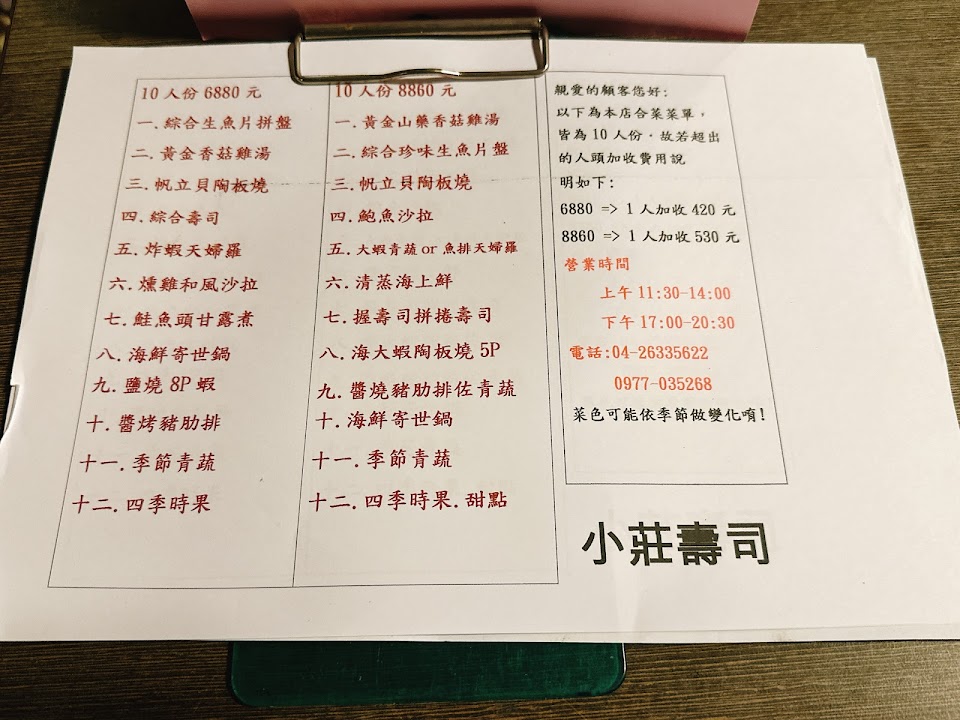 10 人份 6880 元
一. 綜合生魚片拼盤
二. 黃金香菇雞湯
三. 帆立貝陶板燒
四. 綜合壽司
五. 炸蝦天婦羅
六. 燻雞和風沙拉
七. 鮭魚頭甘露煮
八. 海鮮寄世鍋
九. 鹽燒 8P 蝦
十. 醬烤豬肋排
十一. 季節青蔬
十二. 四季時果
10 人份 8860 元
一. 黃金山藥香菇雞湯
二. 綜合珍味生魚片盤
三. 帆立貝陶板燒
四. 鮑魚沙拉
五. 大蝦青蔬 or 魚排天婦羅
六. 清蒸海上鮮
七. 握壽司拼捲壽司
八. 海大蝦陶板燒 5P
九. 醬燒豬肋排佐青蔬
十. 海鮮寄世鍋
十一. 季節青蔬
十二. 四季時果. 甜點
親愛的顧客您好:
以下為本店合菜菜單，
皆為 10 人份，故若超出
的人頭加收費用說
明如下:
6880 => 1 人加收 420 元
8860 => 1 人加收 530 元
營業時間
上午 11:30-14:00
下午 17:00-20:30
電話:04-26335622
0977-035268
菜色可能依季節做變化唷!
小莊壽司